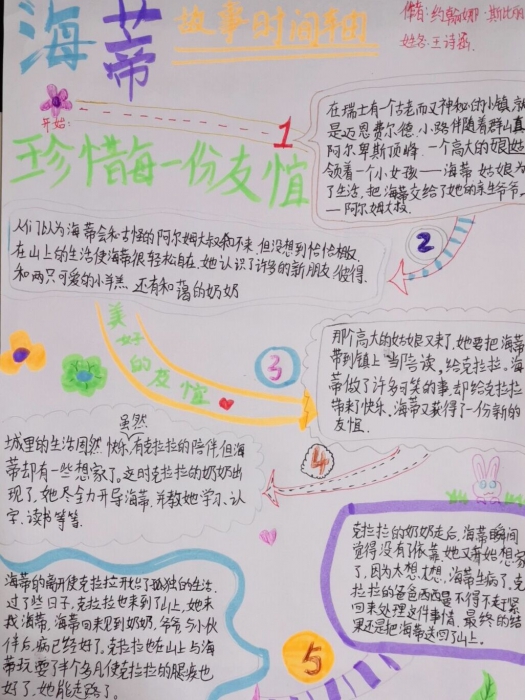 海蒂
故事时间事图
作者:约翰娜·斯比丽
姓名:王诗涵
开始:
珍惜每一份友谊
1
在瑞士有个古老而又神秘的小镇,就
是迈恩费尔德.小路伴随着群山直
阿尔卑斯顶峰.一个高大的姑娘
领着一个小女孩——海蒂.姑娘为
了生活,把海蒂交给了她的亲生爷爷—
——阿尔姆大叔.
2
人们以为海蒂会和古怪的阿尔姆大叔和不来,但没想到恰恰相反.
在山上的生活使海蒂很轻松自在.她认识了许多的新朋友,彼得.
和两只可爱的小羊羔.还有和蔼的奶奶
美好的友谊
3
那个高大的姑娘又来了,她要把海蒂
带到镇上当陪读,给克拉拉,海
蒂做了许多可笑的事,却给克拉拉
带来了快乐,海蒂又获得了一份新的
友谊.
4
虽然
城里的生活固然快乐,有克拉拉的陪伴,但海
蒂却有一些想家了。这时克拉拉的奶奶出
现了,她尽全力开导海蒂.并教她学习、认
字、读书等等.
克拉拉的奶奶走后,海蒂瞬间
觉得没有了依靠,她又开始想家
了,因为太想太想,海蒂生病了,克
拉拉的爸爸不得不赶紧
回来处理这件事情,最终的结
果还是把海蒂送回了山上.
5
海蒂的离开使克拉拉开始了孤独的生活.
过了些日子,克拉拉也来到了山上,她来
找海蒂,海蒂回来见到奶奶,爷爷与小伙
伴后,病已经好了,克拉拉也在山上与海
蒂玩耍了半个多月使克拉拉的腿疾也
好了,她能走路了。